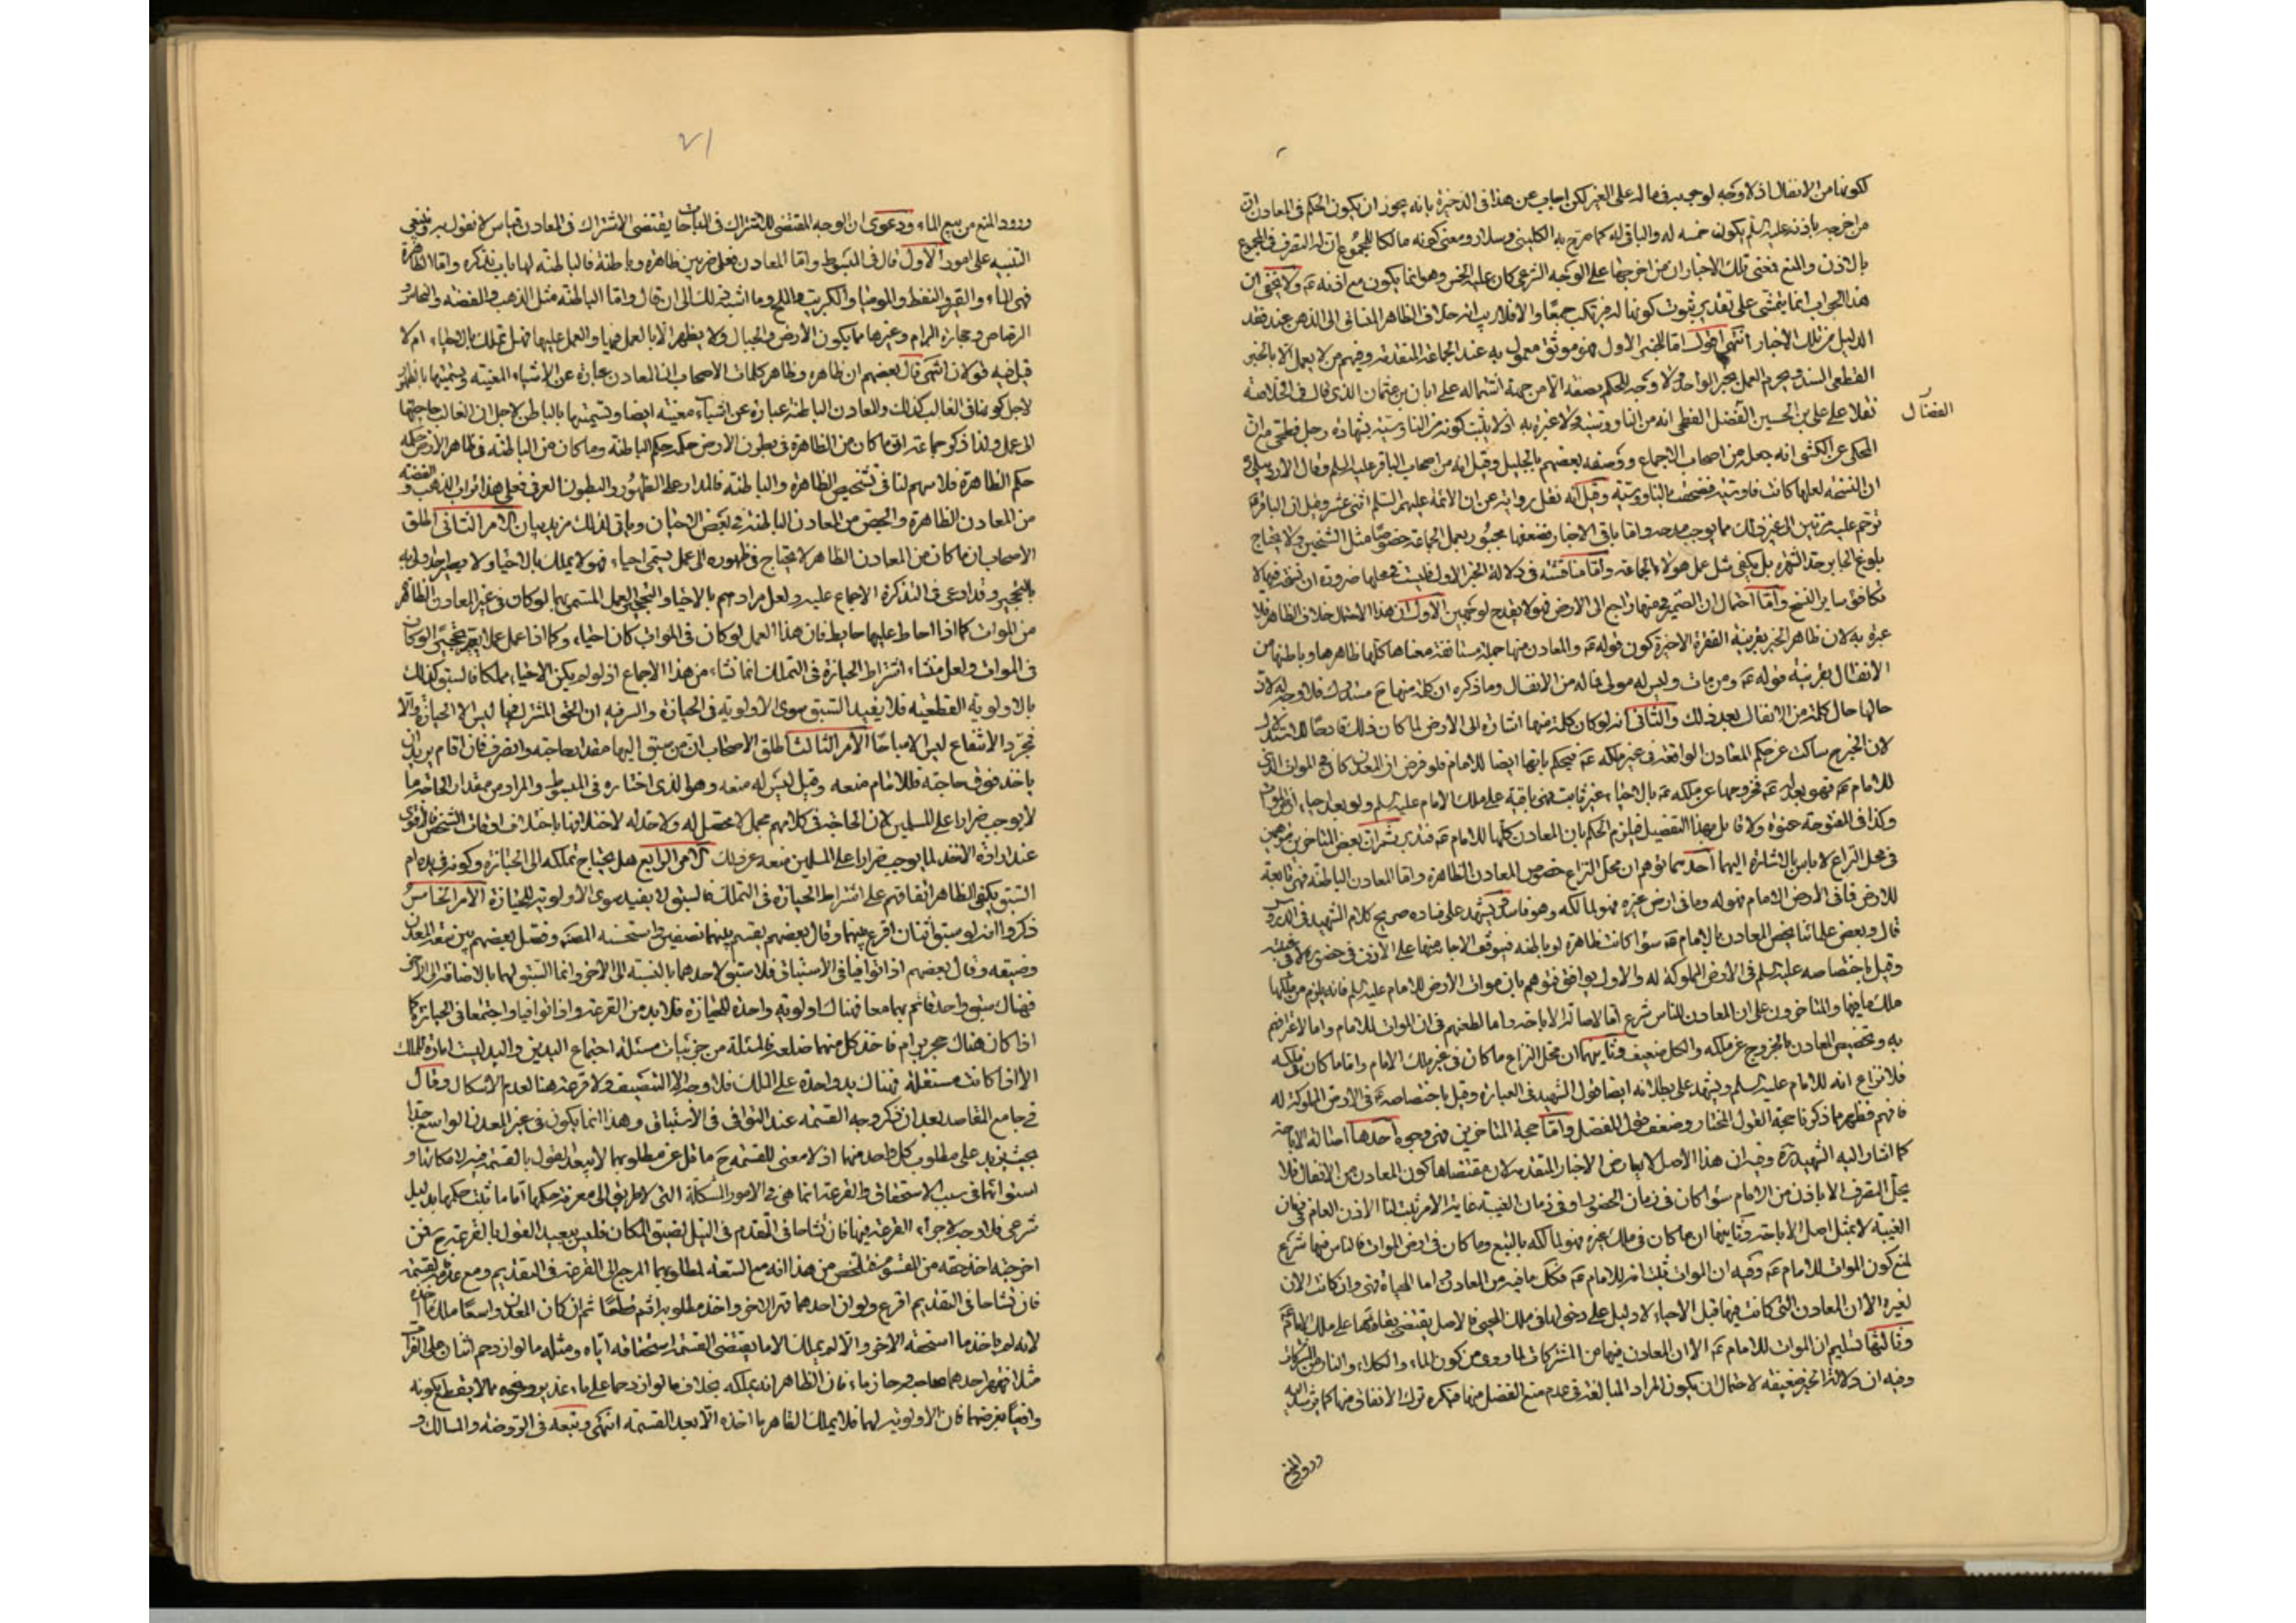 لكونها من الانفال اذ لا وجه لوجوبه فى ماله على الغير لكن اجاب عن هذا فى الذخيرة بانه يجوز ان يكون الحكم فى المعادن ان
من اخرجه باذنه عليه السلم يكون خمسه له والباقى له كما صرح به الكلينى وسلار ومعنى كونه مالكا للمجموع ان له التصرف فى المجموع
بالاذن والمنع فمعنى تلك الاخبار ان من اخرجها على الوجه الشرعى كان عليه الخمس وهو انما يكون مع اذنه عم ولا يخفى ان
هذا الجواب انما يتمشى على تقدير ثبوت كونها له فيرتكب جمعًا والا فلا ريب انه خلاف الظاهر المنساق الى الذهن عند فقد
الدليل من تلك الاخبار انتهى اقول اما الخبر الاول فهو موثق معمول به عند الجماعة المتقدمة وفيهم من لا يعمل الا بالخبر
القطعى السند ويحرم العمل بخبر الواحد ولا وجه للحكم بضعفه الا من جهة اشتماله على ابان بن عثمان الذى قال فى الخلاصة
نقلا على على بن الحسين الفضل الفطحى انه من الناووسية ولا عبرة به اذ لا يثبت كونه من الناووسية بشهادة رجل فطحى مع ان
الفضال
المحكى عن الكشى انه جعله من اصحاب الاجماع ووصفه بعضهم بالجليل وقيل انه من اصحاب الباقر عليه السلم وقال الاردبيلى
ان النسخة لعلها كانت قادسية فصحفت بالناووسية وقيل انه نقل رواية عن ان الائمة عليهم السلم اثنى عشر وقيل ان الباقر عم
ترحم عليه مرتين الى غير ذلك مما يوجب مدحه واما باقى الاخبار فضعفها مجبور بعمل الجماعة خصوصًا مثل الشيخين ولا يحتاج
بلوغ الجابر حد الشهرة بل يكفى مثل عمل هؤلاء الجماعة واما مناقشته فى دلالة الخبر الاول فليست فى محلها ضرورة ان نسخة فيها لا
تكافئ ساير النسخ واما احتمال ان الضمير فى منها راجع الى الارض فهو لا يقدح لوجهين الاول ان هذا الاحتمال خلاف الظاهر فلا
عبرة به لان ظاهر الخبر بقرينة الفقرة الاخيرة كون قوله عم والمعادن منها جملة مستانفة معناها كلها ظاهرها وباطنها من
الانفال بقرينة قوله عم ومن مات وليس له مولى فماله من الانفال وما ذكره ان كلمة منها ح مستدرك فلا وجه له لان
حالها حال كلمة من الانفال بعد ذلك والثانى انه لو كان كلمة منها اشارة الى الارض لما كان ذلك قادحًا للاستدلال
لان الخبر ح ساكت عن حكم المعادن الواقعة فى غير ملكه عم فيحكم بانها ايضا للامام فلو فرض ان المعدن كان فى الموات الذى
للامام عم فهو بعد له عم فخروجها عن ملكه عم بالاحياء غير ثابت فهى باقية على ملك الامام عليه السلم ولو بعد احياء ارض الموات
وكذا فى المفتوحة عنوة ولا قايل بهذا التفصيل فيلزم الحكم بان المعادن كلها للامام عم فتدبر ثم ان بعض المتاخرين توهمين
فى محل النزاع لا باس بالاشارة اليهما احدهما توهم ان محل النزاع خصوص المعادن الظاهرة واما المعادن الباطنة فهى تابعة
للارض فما فى الارض الامام فهو له وما فى ارض غيره فهو لمالكه وهو فاسد يشهد على فساده صريح كلام الشهيد فى الدروس
قال وبعض علمائنا يخص المعادن بالامام عم سواء كانت ظاهرة او باطنة فيتوقف الاحياء منها على الاذن فى حضوره لا فى غيبته
وقيل باختصاصه عليه السلم فى الارض المملوكة له والاول يوافق فتواهم بان موات الارض للامام عليه السلم فانه يلزم من ملكها
ملك ما فيها والمتاخرون على ان المعادن للناس شرع اما لاصالة الاباحة واما لطعنهم فى ان الموات للامام واما لاعترافهم
به وتخصيص المعادن بالخروج عن ملكه والكل ضعيف وثانيهما ان محل النزاع ما كان فى غير ملك الامام واما ما كان فى ملكه
فلا نزاع انه للامام عليه السلم ويشهد على بطلانه ايضا قول الشهيد فى العبارة وقيل باختصاصه عم فى الارض المملوكة له
فافهم فظهر مما ذكرنا حجة القول المختار وضعف قول المفصل واما حجة المتاخرين فهى وجوه احدها اصالة الاباحة
كما اشار اليه الشهيد ره وفيه ان هذا الاصل لا يعارض الاخبار المتقدمة لان مقتضاها كون المعادن من الانفال فلا
يحل التصرف الا باذن من الامام سواء كان فى زمان الحضور او فى زمان الغيبة غاية الامر ثبت لنا الاذن العام فى زمان
الغيبة لا بمثل اصل الاباحة وثانيها ان ما كان فى ملك غيره فهو لمالكه بالتبع وما كان فى ارض الموات فالناس فيها شرع
لمنع كون الموات للامام عم وفيه ان الموات ثبت انه للامام عم فكل ما فيه من المعادن واما المحياة فهى وان كانت الان
لغيره الا ان المعادن التى كانت فيها قبل الاحياء لا دليل على دخولها فى ملك المحيى فالاصل يقتضى بقائها على ملك الامام عم
وثالثها تسليم ان الموات للامام عم الا ان المعادن فيها من المشتركات لما روى من كون الماء والكلاء والنار من المشتركات
وفيه ان دلالة الخبر ضعيفه لاحتمال ان يكون المراد المبالغة فى عدم منع الفضل منها فيكره ترك الانفاق منها كما يرشد اليه
ورود المنع
٧١
ورود المنع من بيع الماء ودعوى ان الوجه المقتضى للاشتراك فى المباحات يقتضى الاشتراك فى المعادن قياس لا نقول به وينبغى
التنبيه على امور الاول قال فى المبسوط واما المعادن فعلى ضربين ظاهرة وباطنة فالباطنة لها باب نذكره واما الظاهرة
فهى الماء والقير والنفط والموميا والكبريت والملح وما اشبه ذلك الى ان قال واما الباطنة مثل الذهب والفضة والنحاس و
الرصاص وحجارة البرام وغيرها مما يكون الارض والجبال ولا يظهر الا بالعمل فيها والعمل عليها فهل تملك بالاحياء ام لا
قيل فيه قولان انتهى قال بعضهم ان ظاهره وظاهر كلمات الاصحاب ان المعادن عبارة عن الاشياء المعينة وتسميتها بالظهور
لاجل كونها فى الغالب كذلك والمعادن الباطنة عبارة عن اشياء معينة ايضا وتسميتها بالباطن لاجل ان الغالب حاجتها
الى عمل ولذا ذكر جماعة ان ما كان من الظاهرة فى بطون الارض حكمه حكم الباطنة وما كان من الباطنة فى ظاهر الارض حكمه
حكم الظاهرة فلا مهم لنا فى تشخيص الظاهرة والباطنة فالمدار على الظهور والبطون العرفى فعلى هذا تراب الذهب والفضة
من المعادن الظاهرة والجص من المعادن الباطنة فى بعض الاحيان وياتى لذلك مزيد بيان الامر الثانى اطلق
الاصحاب ان ما كان من المعادن الظاهر لا يحتاج فى ظهوره الى عمل يسمى احياء فهو لا يملك بالاحياء ولا يصير احد اولى به
بالتحجير وقد ادعى فى التذكرة الاجماع عليه ولعل مرادهم بالاحياء والتحجير العمل المسمى بهما لو كان فى غير المعادن الظاهر
من الموات كما اذا احاط عليها حايط فان هذا العمل لو كان فى الموات كان احياء وكما اذا عمل عملا يعد تحجيرًا لو كان
فى الموات ولعل منشاء اشتراط الحيازة فى التملك انما نشاء من هذا الاجماع اذ لو لم يكن الاحياء مملكا فالسبق كذلك
بالاولوية القطعية فلا يفيد السبق سوى الاولوية فى الحيازة والسر فيه ان الحق المشترك فيها ليس الا الحيازة والا
فمجرد الانتفاع ليس الا مباحًا الامر الثالث اطلق الاصحاب ان من سبق اليها مقدار حاجته والتصرف فان اقام يريد ان
ياخذ فوق حاجته فللامام منعه وقيل ليس له منعه وهو الذى اختاره فى المبسوط والمراد من مقدار الحاجة ما
لا يوجب ضرارا على المسلمين لان الحاجة فى كلامهم مجمل لا محصل له ولا حد له لاختلافها باختلاف اوقات الشخص فالاقوى
عند ارادة الاخذ لما يوجب ضرارا على المسلمين منعه عن ذلك الامر الرابع هل يحتاج تملكه الى الحيازة وكونه فى يده ام
السبق يكفى الظاهر اتفاقهم على اشتراط الحيازة فى التملك فالسبق لا يفيد سوى الاولوية للحيازة الامر الخامس
ذكروا انه لو سبق اثنان اقرع بينهما وقال بعضهم يقسم بينهما نصفين واستحسنه المص وفصل بعضهم بين سعة المعدن
وضيقه وقال بعضهم اذا توافيا فى الاستباق فلا سبق لاحدهما بالنسبة الى الاخر وانما السبق لهما بالاضافة الى الاخر
فهناك سبق واحد قائم بهما معا فهناك اولوية واحدة للحيازة فلا بد من القرعة واذا توافيا واجتمعا فى الحيازة كما
اذا كان هناك حجر برام فاخذ كل منهما ضلعه فالمسئلة من جزئيات مسئلة اجتماع اليدين واليد ليست امارة للملك
الا اذا كانت مستقلة فهناك يد واحدة على الملك فلا وجه الا التنصيف ولا قرعة هنا لعدم الاشكال وقال
فى جامع المقاصد بعد ان ذكر وجه القسمة عند التوافى فى الاستباق وهذا انما يكون فى غير المعدن الواسع جدا
بحيث يزيد على مطلوب كل واحد منهما اذ لا معنى للقسمة ح ما قل عن مطلوبهما لا يبعد القول بالقسمة فيه لامكانها و
استوائهما فى سبب الاستحقاق والقرعة انما هى فى الامور المشكلة التى لا طريق الى معرفة حكمها اما ما ثبت حكمها بدليل
شرعى فلا وجه لاجراء القرعة فيها فان تشاحا فى التقدم فى النيل لضيق المكان فليس ببعيد القول بالقرعة ح فمن
اخرجته اخذ حقه من المقسوم فتلخص من هذا انه مع السعة لمطلوبهما المرجع الى القرعة فى التقديم ومع عدمه القسمة
فان تشاحا فى التقديم اقرع ولو ان احدهما قهر الاخر واخذ مطلوبه اثم قطعًا ثم ان كان المعدن واسعًا ملك ما اخذه
لانه لم ياخذ ما استحقه الاخر والا لم يملك الا ما يقتضى القسمة استحقاقه اياه ومثله ما لو ازدحم اثنان على الفرات
مثلا فقهر احدهما صاحبه وحاز ماء فان الظاهر انه يملكه بخلاف ما لو ازدحما على ماء غدير ونحوه مما لا يقطع بكونه
وافيًا بغرضهما فان الاولوية لهما فلا يملك القاهر ما اخذه الا بعد القسمة انتهى وتبعه فى الروضة والمسالك و